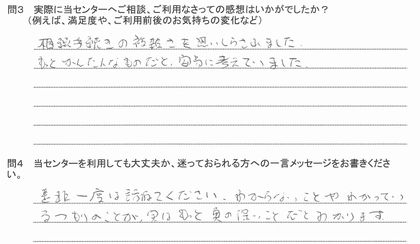 問3　実際に当センターへご相談、ご利用なさっての感想はいかがでしたか？
（例えば、満足度や、ご利用前後のお気持ちの変化など）
相談手続きの複雑さを思いしらされました。
もっとかんたんなものだと、安易に考えていました。
問4　当センターを利用しても大丈夫か、迷っておられる方への一言メッセージをお書きくださ
い。
是非一度は訪ねてください。わからないことやわかってい
るつもりのことが、実はもっと奥の深いことだとわかります。